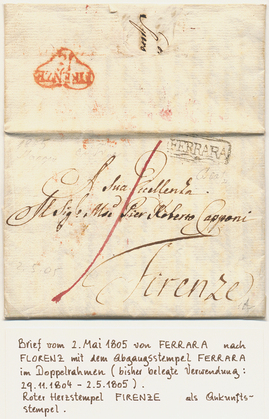 FIRENZE
FERRARA
A Sua Eccellenza
Pier Roberto Capponi
Firenze
Brief vom 2. Mai 1805 von FERRARA nach
FLORENZ mit dem Abgangsstempel FERRARA
im Doppelrahmen (bisher belegte Verwendung:
29.11.1804 - 2.5.1805).
Roter Herzstempel FIRENZE als Ankunfts-
stempel.